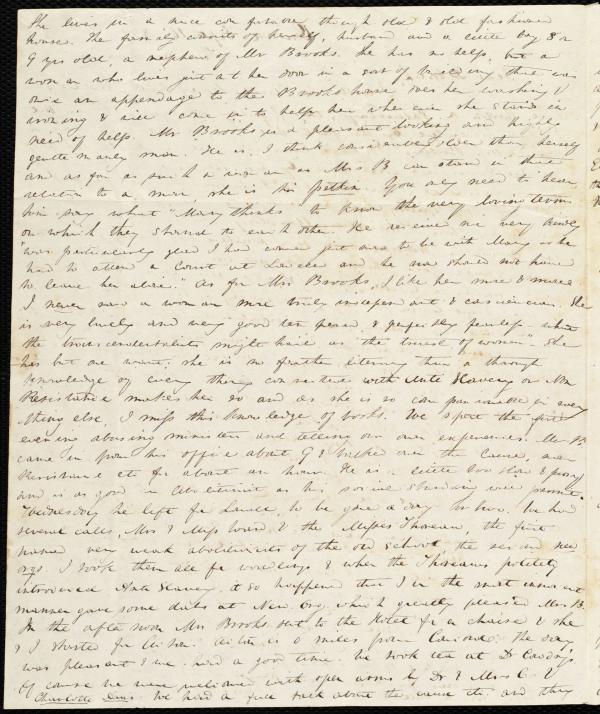 She lives in a nice comfortable though old & old fashioned
house. The family consists of herself, husband and a little boy 8 or
9 yrs old, a nephew of Mr Brooks. She has no help, but a
woman who lives just at her door in a sort of building that was
once an appendage to the Brooks house does her washing &
ironing & will come in to help her whenever she stands in
need of help. Mr Brooks is a pleasant looking and highly
gentlemanly man. He is, I think considerably older than herself
and as far as such a woman as Mrs B can stand in the
relation to a man she is his pettee. You only need to hear
him say what "Mary thinks" to know the very loving terms
on which they stand to each other. He received me very kindly
"was particularly glad I had come just now to be with Mary as he
had to attend a Court at and he now should not have
to leave her alone." As for Mrs Brooks, I like her more & more
I never saw a woman more truly independent & conscientious. She
is very lively and very good tempered, & perfectly fearless - what
the transcendentalists might hail as the "truest of women". She
has but one want; she is no farther literary than a through
knowledge of every thing connected with Anti Slavery or Non
Resistance makes her so and as she is so companionable in every
thing else, I miss this knowledge of books. We spent the first
evening abusing ministers and telling our own experiences. Mr B.
came in from his office about 9 & talked over the Cause, non
Resistance etc for about an hour. He is a little too slow & prosy
and is as good an Abolitionist as his social standing will permit.
Wednesday he left for to be gone a day or two. We had
several calls, Mrs & Miss Ward & the Misses Thoreau, the first
named very weak abolitionists of the old school, the second new
orgs. I took them all for worldlings & when the Thoreaus politely
introduced Anti Slavery it so happened that I in the most innocent
manner gave some dabs at New Org. which greatly pleased Mrs B.
In the afternoon Mrs Brooks sent to the Hotel for a chaise & she
& I started for Acton. Acton is 6 miles from Concord. The day
was pleasant & we had a good time. We took tea at Dr Cowdry's
Of course we were welcomed with open arms by Dr & Mrs C. &
Charlotte We had a full talk about the cause etc. and they